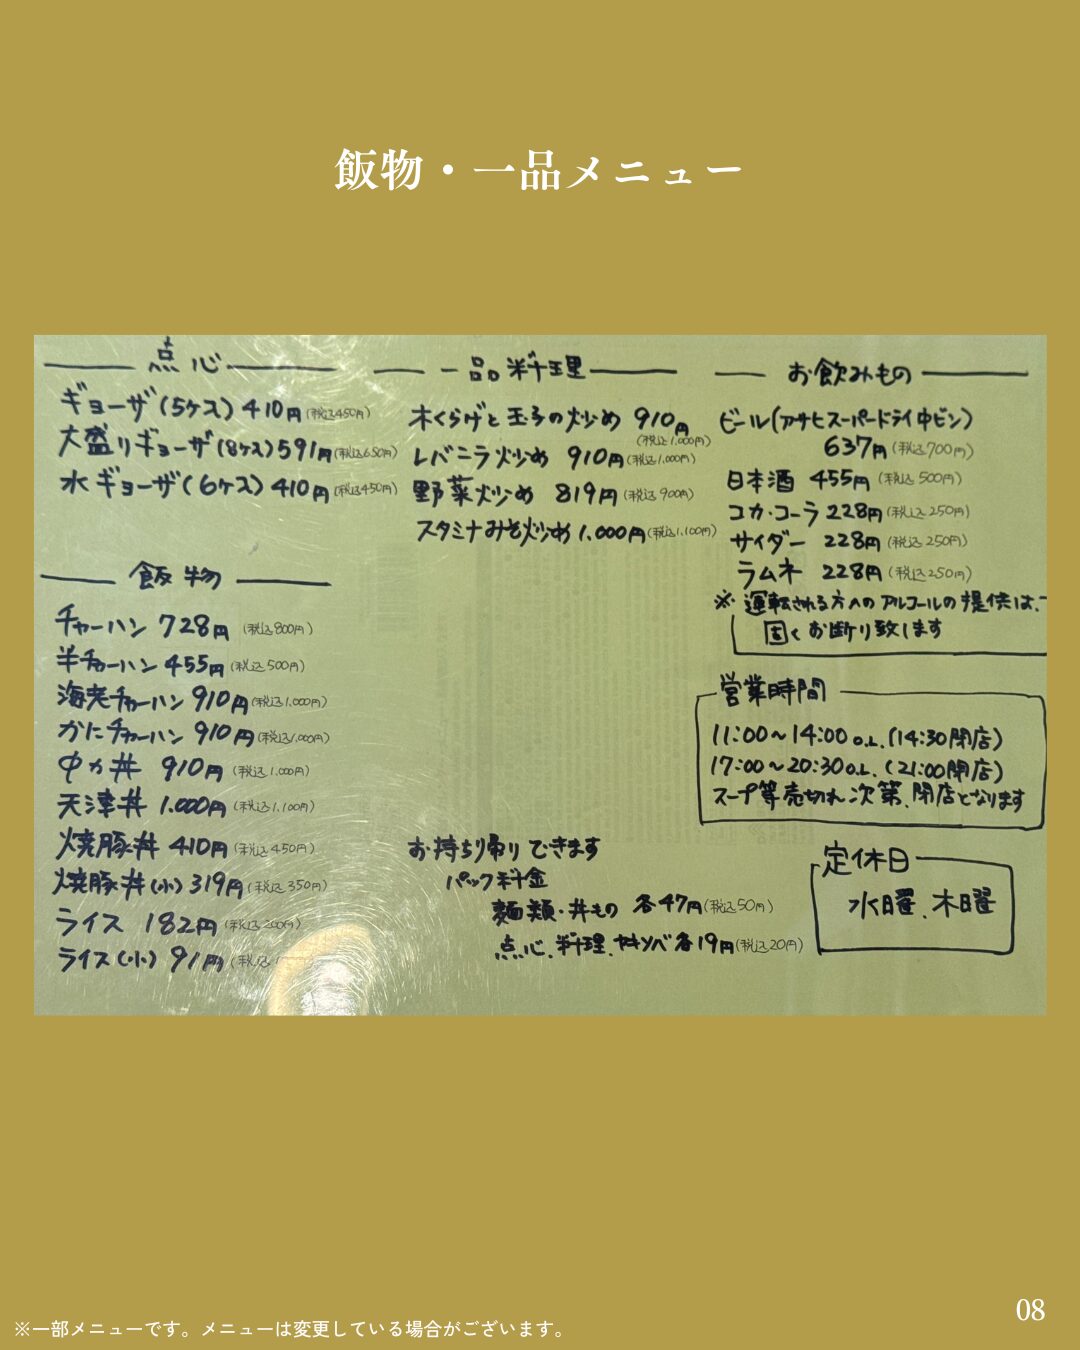 飯物・一品メニュー
点心
ギョーザ(5ケ入) 410円(税込450円)
大盛りギョーザ(8ケ入) 591円(税込650円)
水ギョーザ(6ケ入) 410円(税込450円)
飯物
チャーハン 728円 (税込800円)
半チャーハン 455円(税込500円)
海老チャーハン 910円(税込1.000円)
かにチャーハン 910円(税込1.000円)
中カ丼 910円 (税込1.000円)
天津丼 1.000円(税込1.100円)
焼豚丼 410円(税込450円)
焼豚丼(小) 319円(税込350円)
ライス 182円(税込200円)
ライス(小) 91円(税込
一品料理
木くらげと玉子の炒め 910円
(税込1.000円)
レバニラ炒め 910円(税込1.000円)
野菜炒め 819円(税込900円)
スタミナみそ炒め 1.000円(税込1.100円)
お持ち帰りできます
パック料金
麺類・丼もの 各47円(税込50円)
点心、料理、ヤキソバ各19円(税込20円)
お飲みもの
ビール(アサヒスーパードライ中ビン)
637円(税込700円)
日本酒 455円(税込500円)
コカ・コーラ 228円(税込250円)
サイダー 228円(税込250円)
ラムネ 228円(税込250円)
※運転される方へのアルコールの提供は、
固くお断り致します
営業時間
11:00〜14:00 O.L.(14:30閉店)
17:00〜20:30 O.L.(21:00閉店)
スープ等売切れ次第、閉店となります
定休日
水曜、木曜
※一部メニューです。メニューは変更している場合がございます。
08